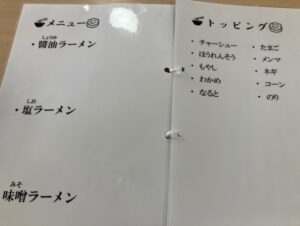 メニュー
しょうゆ
・醬油ラーメン
しお
・塩ラーメン
みそ
味噌ラーメン
トッピング
・チャーシュー
・ほうれんそう
・もやし
・わかめ
・なると
・たまご
・メンマ
・ネギ
・コーン
・のり